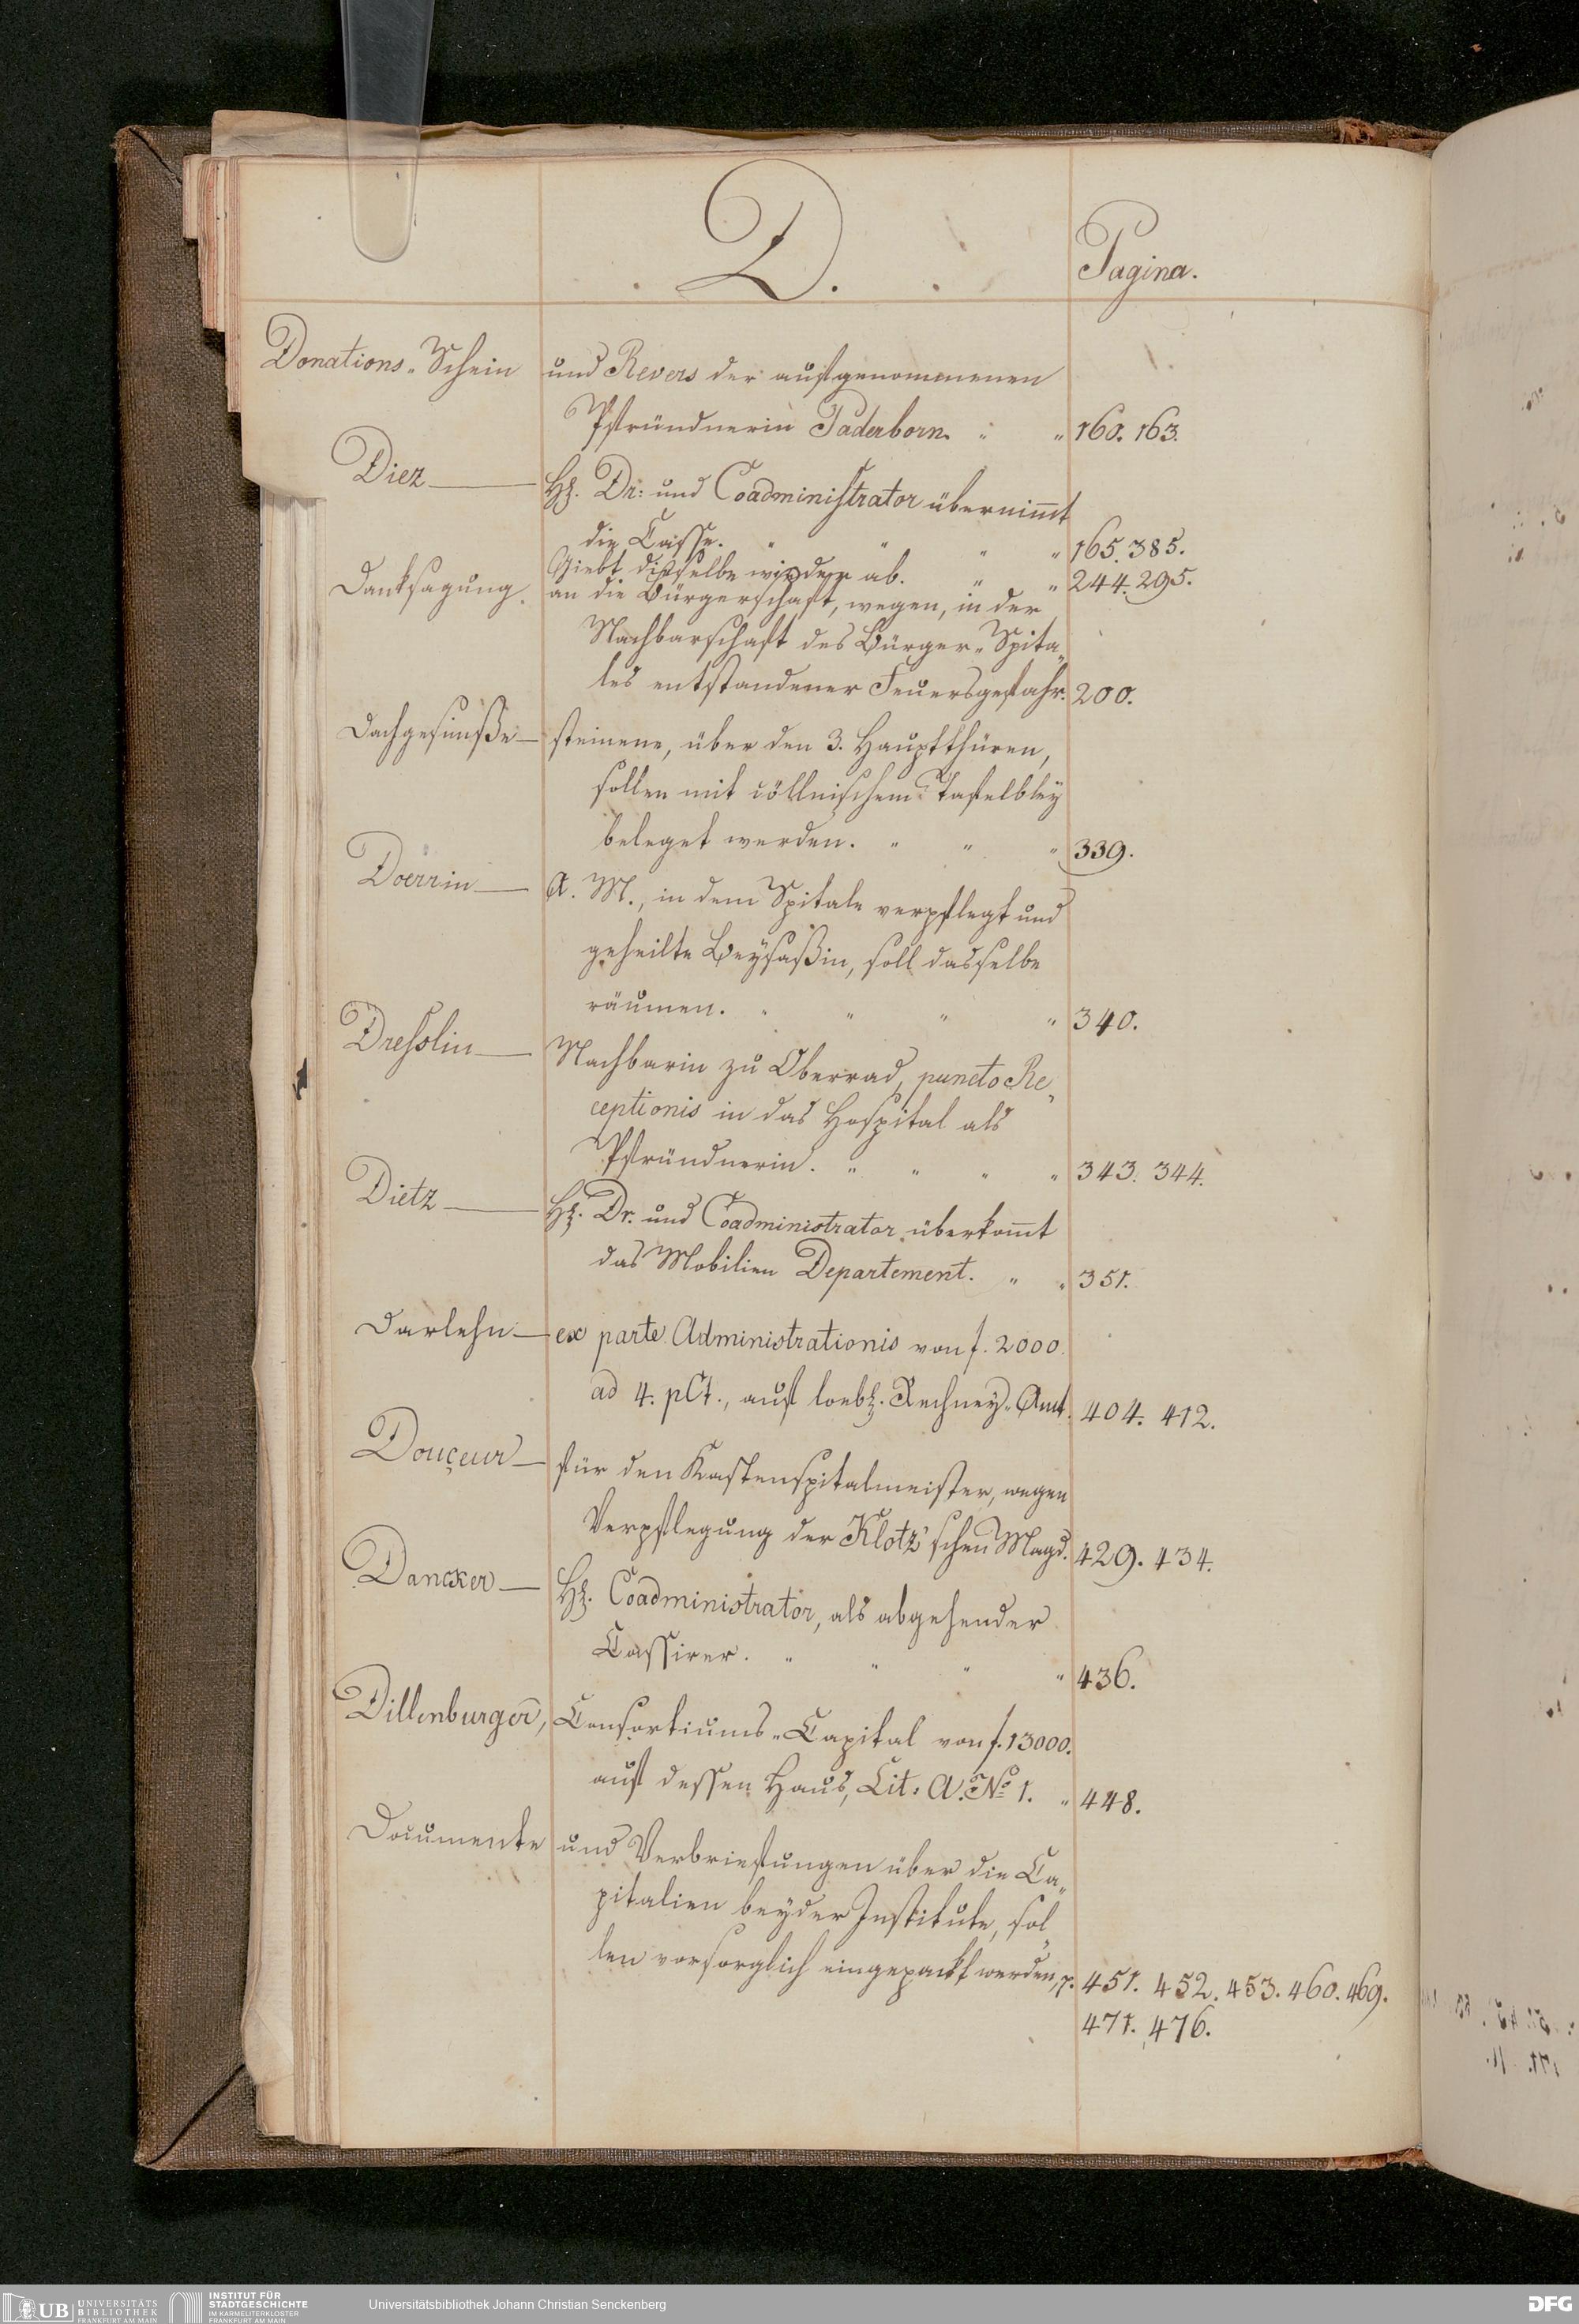 D.
Pagina.
Donations-Schein und Revers der aufgenommenen
Pfründnerin Paderborn. " " 160. 163.
Diez — Hr. Dr: und Coadministrator übernim̅t
die Casse. " " " " 165. 385.
Giebt dieselbe wieder ab. " " 244. 295.
Danksagung. an die Bürgerschaft, wegen, in der
Nachbarschaft des Bürger-Spita-
les entstandener Feuersgefahr. 200.
Dachgesimße — steinene, über den 3. Hauptthüren,
sollen mit cöllnischem Tafelbley
beleget werden. " " " 339.
Doerrin — A. M., in dem Spitale verpflegt und
geheilte Beysaßin, soll dasselbe
räumen. " " " " 340.
Dresslin — Nachbarin zu Oberrad, puncto Re-
ceptionis in das Hospital als
Pfründnerin. " " " " 343. 344.
Dietz — Hr. Dr. und Coadministrator überkom̅t
das Mobilien Departement. " " 351.
Darlehn — ex parte Administrationis von f. 2000.
ad 4. pCt., auf loebl. Rechney-Amt. 404. 412.
Douçeur — für den Kastenspitalmeister, wegen
Verpflegung der Klotz'schen Magd. 429. 434.
Dancker — Hr. Coadministrator, als abgehender
Cassirer. " " " " 436.
Dillenburger, Consortiums-Capital von f. 13000.
auf dessen Haus, Lit: A. No 1. " 448.
Documente und Verbriefungen über die Ca-
pitalien beyder Institute, sol-
len vorsorglich eingepackt werden, 451. 452. 453. 460. 469.
471. 476.
UB UNIVERSITÄTS
BIBLIOTHEK
FRANKFURT AM MAIN
INSTITUT FÜR
STADTGESCHICHTE
IM KARMELITERKLOSTER
FRANKFURT AM MAIN
Universitätsbibliothek Johann Christian Senckenberg
DFG